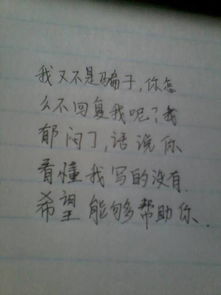 我又不是骗子,你怎
么不回复我呢?我
郁闷了,话说你
看懂我写的没有
希望能够帮助你.